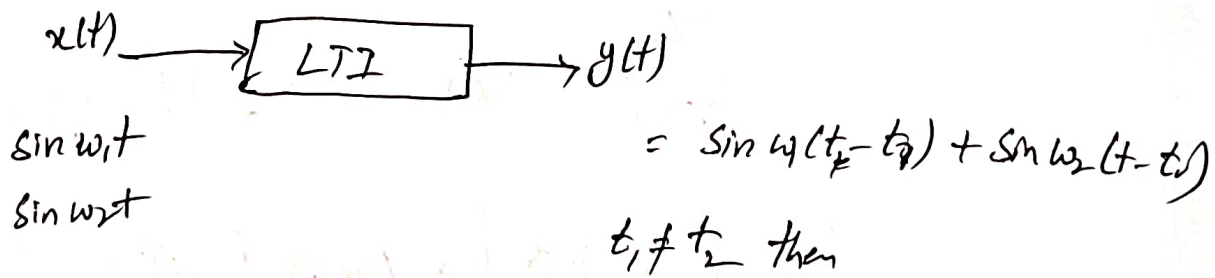 x(t) LTI y(t)
sin ω₁t = sin ω₁(t - t₁) + sin ω₂(t - t₂)
sin ω₂t
t₁ ≠ t₂ then